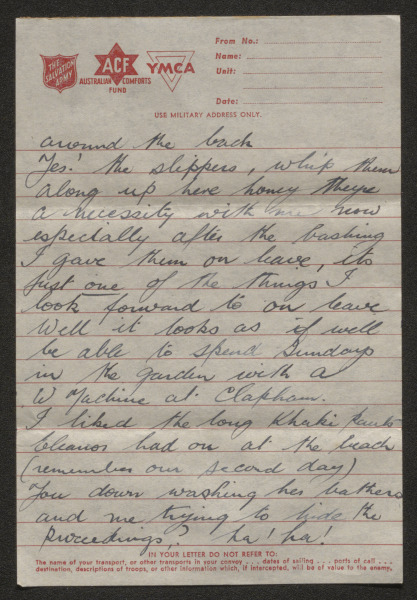 THE SALVATION ARMY
ACF
AUSTRALIAN COMFORTS FUND
YMCA
From No.:
Name:
Unit:
Date:
USE MILITARY ADDRESS ONLY.
around the back
Yes! the slippers, whip them
along up here honey theyre
a necessity with me now
especially after the bashing
I gave them on leave, its
just one of the things I
look forward to on leave
Well it looks as if well
be able to spend Sundays
in the garden with a
W Machine at Clapham.
I liked the long Khaki pants
Eleanor had on at the beach
(remember our second day)
You down washing her bathers
and me trying to hide the
proceedings? ha! ha!
IN YOUR LETTER DO NOT REFER TO:
The name of your transport, or other transports in your convoy . . . dates of sailing . . . ports of call . . .
destination, descriptions of troops, or other information which, if intercepted, will be of value to the enemy.